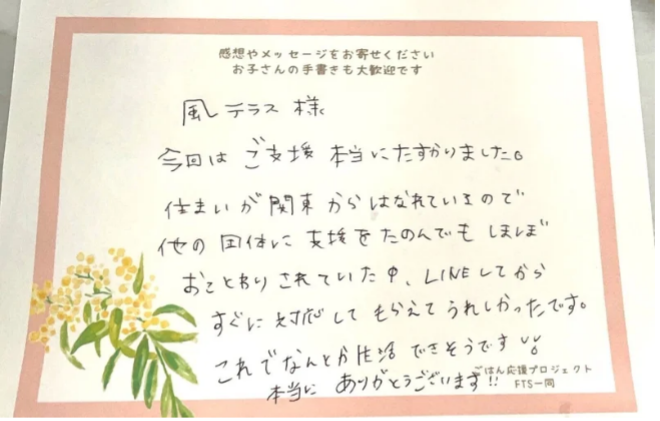 感想やメッセージをお寄せください
お子さんの手書きも大歓迎です
風テラス 様
今回は ご支援 本当にたすかりました。
住まいが関東からはなれているので
他の団体に支援をたのんでもしばしば
おことわりされていた中、LINEしてから
すぐに対応してもらえてうれしかったです。
これでなんとか生活できそうです
本当に ありがとうございます!!
ごはん応援プロジェクト
FTS一同